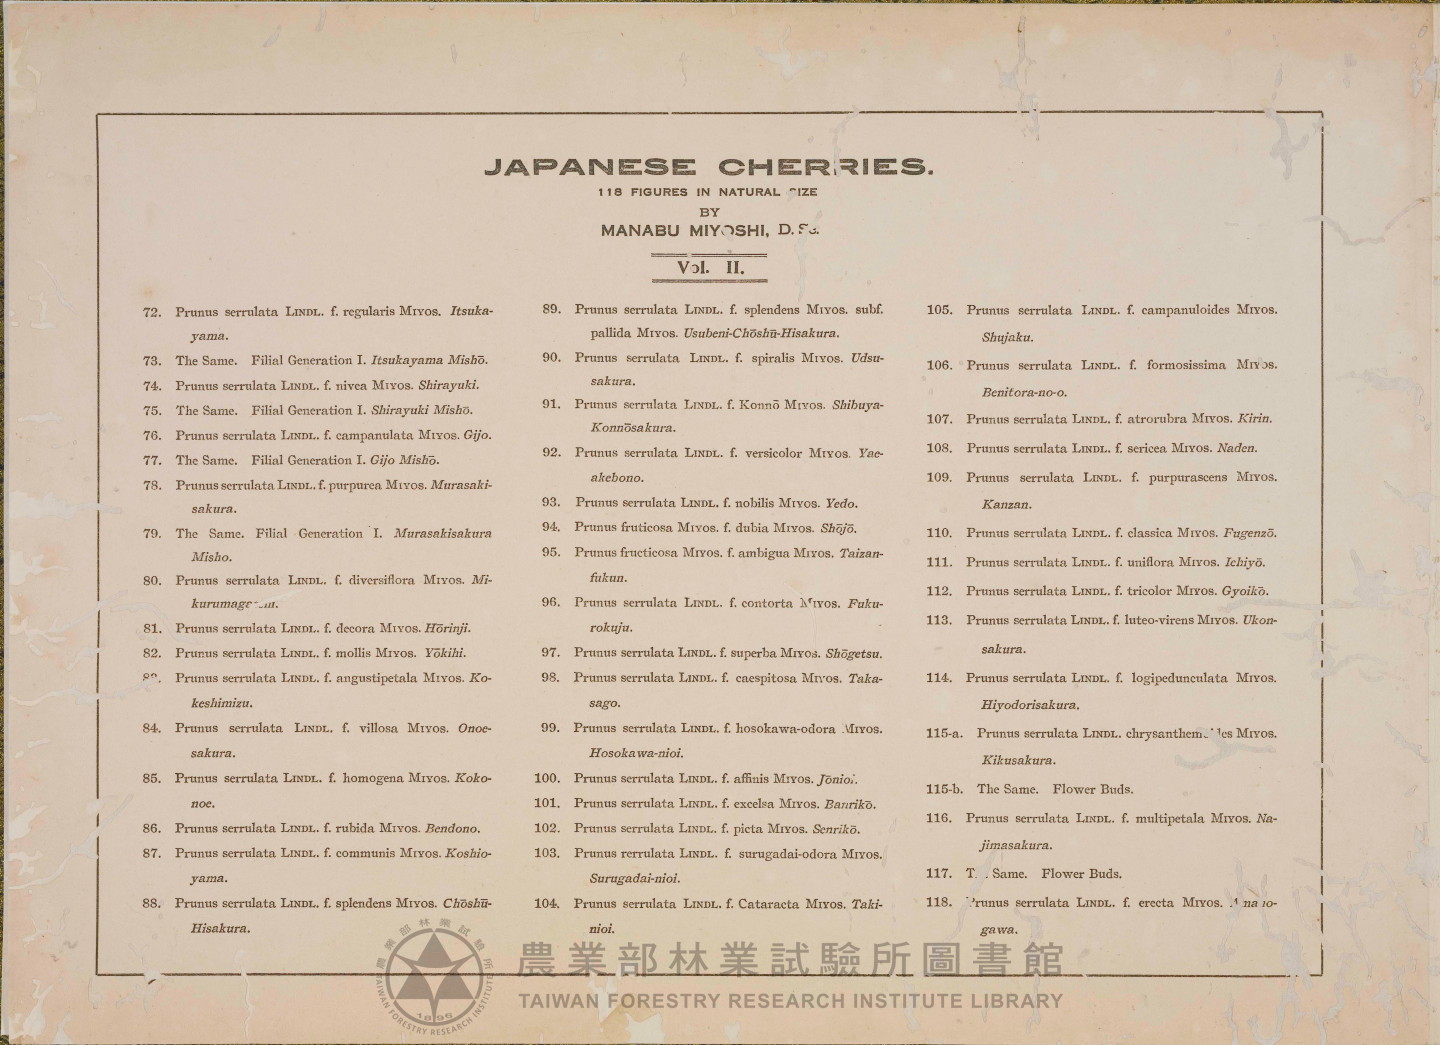 JAPANESE CHERRIES.
118 FIGURES IN NATURAL SIZE
BY
MANABU MIYOSHI, D. Sc.
Vol. II.
72. Prunus serrulata LINDL. f. regularis MIYOS. Itsuka-
yama.
73. The Same. Filial Generation I. Itsukayama Mishō.
74. Prunus serrulata LINDL. f. nivea MIYOS. Shirayuki.
75. The Same. Filial Generation I. Shirayuki Mishō.
76. Prunus serrulata LINDL. f. campanulata MIYOS. Gijo.
77. The Same. Filial Generation I. Gijo Mishō.
78. Prunus serrulata LINDL. f. purpurea MIYOS. Murasaki-
sakura.
79. The Same. Filial Generation I. Murasakisakura
Misho.
80. Prunus serrulata LINDL. f. diversiflora MIYOS. Mi-
81. Prunus serrulata LINDL. f. decora MIYOS. Hōrinji.
82. Prunus serrulata LINDL. f. mollis MIYOS. Yōkihi.
Prunus serrulata LINDL. f. angustipetala MIYOS. Ko-
keshimizu.
84. Prunus serrulata LINDL. f. villosa MIYOS. Onoe-
sakura.
85. Prunus serrulata LINDL. f. homogena MIYOS. Koko-
noe.
86. Prunus serrulata LINDL. f. rubida MIYOS. Bendono.
87. Prunus serrulata LINDL. f. communis MIYOS. Koshio-
yama.
88. Prunus serrulata LINDL. f. splendens MIYOS. Chōshū-
Hisakura.
89. Prunus serrulata LINDL. f. splendens MIYOS. subf.
pallida MIYOS. Usubeni-Chōshū-Hisakura.
90. Prunus serrulata LINDL. f. spiralis MIYOS. Udsu-
sakura.
91. Prunus serrulata LINDL. f. Konnō MIYOS. Shibuya-
Konnōsakura.
92. Prunus serrulata LINDL. f. versicolor MIYOS. Yae-
akebono.
93. Prunus serrulata LINDL. f. nobilis MIYOS. Yedo.
94. Prunus fruticosa MIYOS. f. dubia MIYOS. Shōjō.
95. Prunus fructicosa MIYOS. f. ambigua MIYOS. Taizan-
fukun.
96. Prunus serrulata LINDL. f. contorta MIYOS. Fuku-
rokuju.
97. Prunus serrulata LINDL. f. superba MIYOS. Shōgetsu.
98. Prunus serrulata LINDL. f. caespitosa MIYOS. Taka-
sago.
99. Prunus serrulata LINDL. f. hosokawa-odora MIYOS.
Hosokawa-nioi.
100. Prunus serrulata LINDL. f. affinis MIYOS. Jōnioi.
101. Prunus serrulata LINDL. f. excelsa MIYOS. Banrikō.
102. Prunus serrulata LINDL. f. picta MIYOS. Senrikō.
103. Prunus rerrulata LINDL. f. surugadai-odora MIYOS.
Surugadai-nioi.
104. Prunus serrulata LINDL. f. Cataracta MIYOS. Taki-
nioi.
105. Prunus serrulata LINDL. f. campanuloides MIYOS.
Shujaku.
106. Prunus serrulata LINDL. f. formosissima MIYOS.
Benitora-no-o.
107. Prunus serrulata LINDL. f. atrorubra MIYOS. Kirin.
108. Prunus serrulata LINDL. f. sericea MIYOS. Naden.
109. Prunus serrulata LINDL. f. purpurascens MIYOS.
Kanzan.
110. Prunus serrulata LINDL. f. classica MIYOS. Fugenzō.
111. Prunus serrulata LINDL. f. uniflora MIYOS. Ichiyō.
112. Prunus serrulata LINDL. f. tricolor MIYOS. Gyoikō.
113. Prunus serrulata LINDL. f. luteo-virens MIYOS. Ukon-
sakura.
114. Prunus serrulata LINDL. f. logipedunculata MIYOS.
Hiyodorisakura.
115-a. Prunus serrulata LINDL. MIYOS.
Kikusakura.
115-b. The Same. Flower Buds.
116. Prunus serrulata LINDL. f. multipetala MIYOS. Na-
jimasakura.
117. Same. Flower Buds.
118. Prunus serrulata LINDL. f. erecta MIYOS.
gawa.
農業部林業試驗所圖書館
TAIWAN FORESTRY RESEARCH INSTITUTE LIBRARY
農業部林業試驗所
TAIWAN FORESTRY RESEARCH INSTITUTE
1896